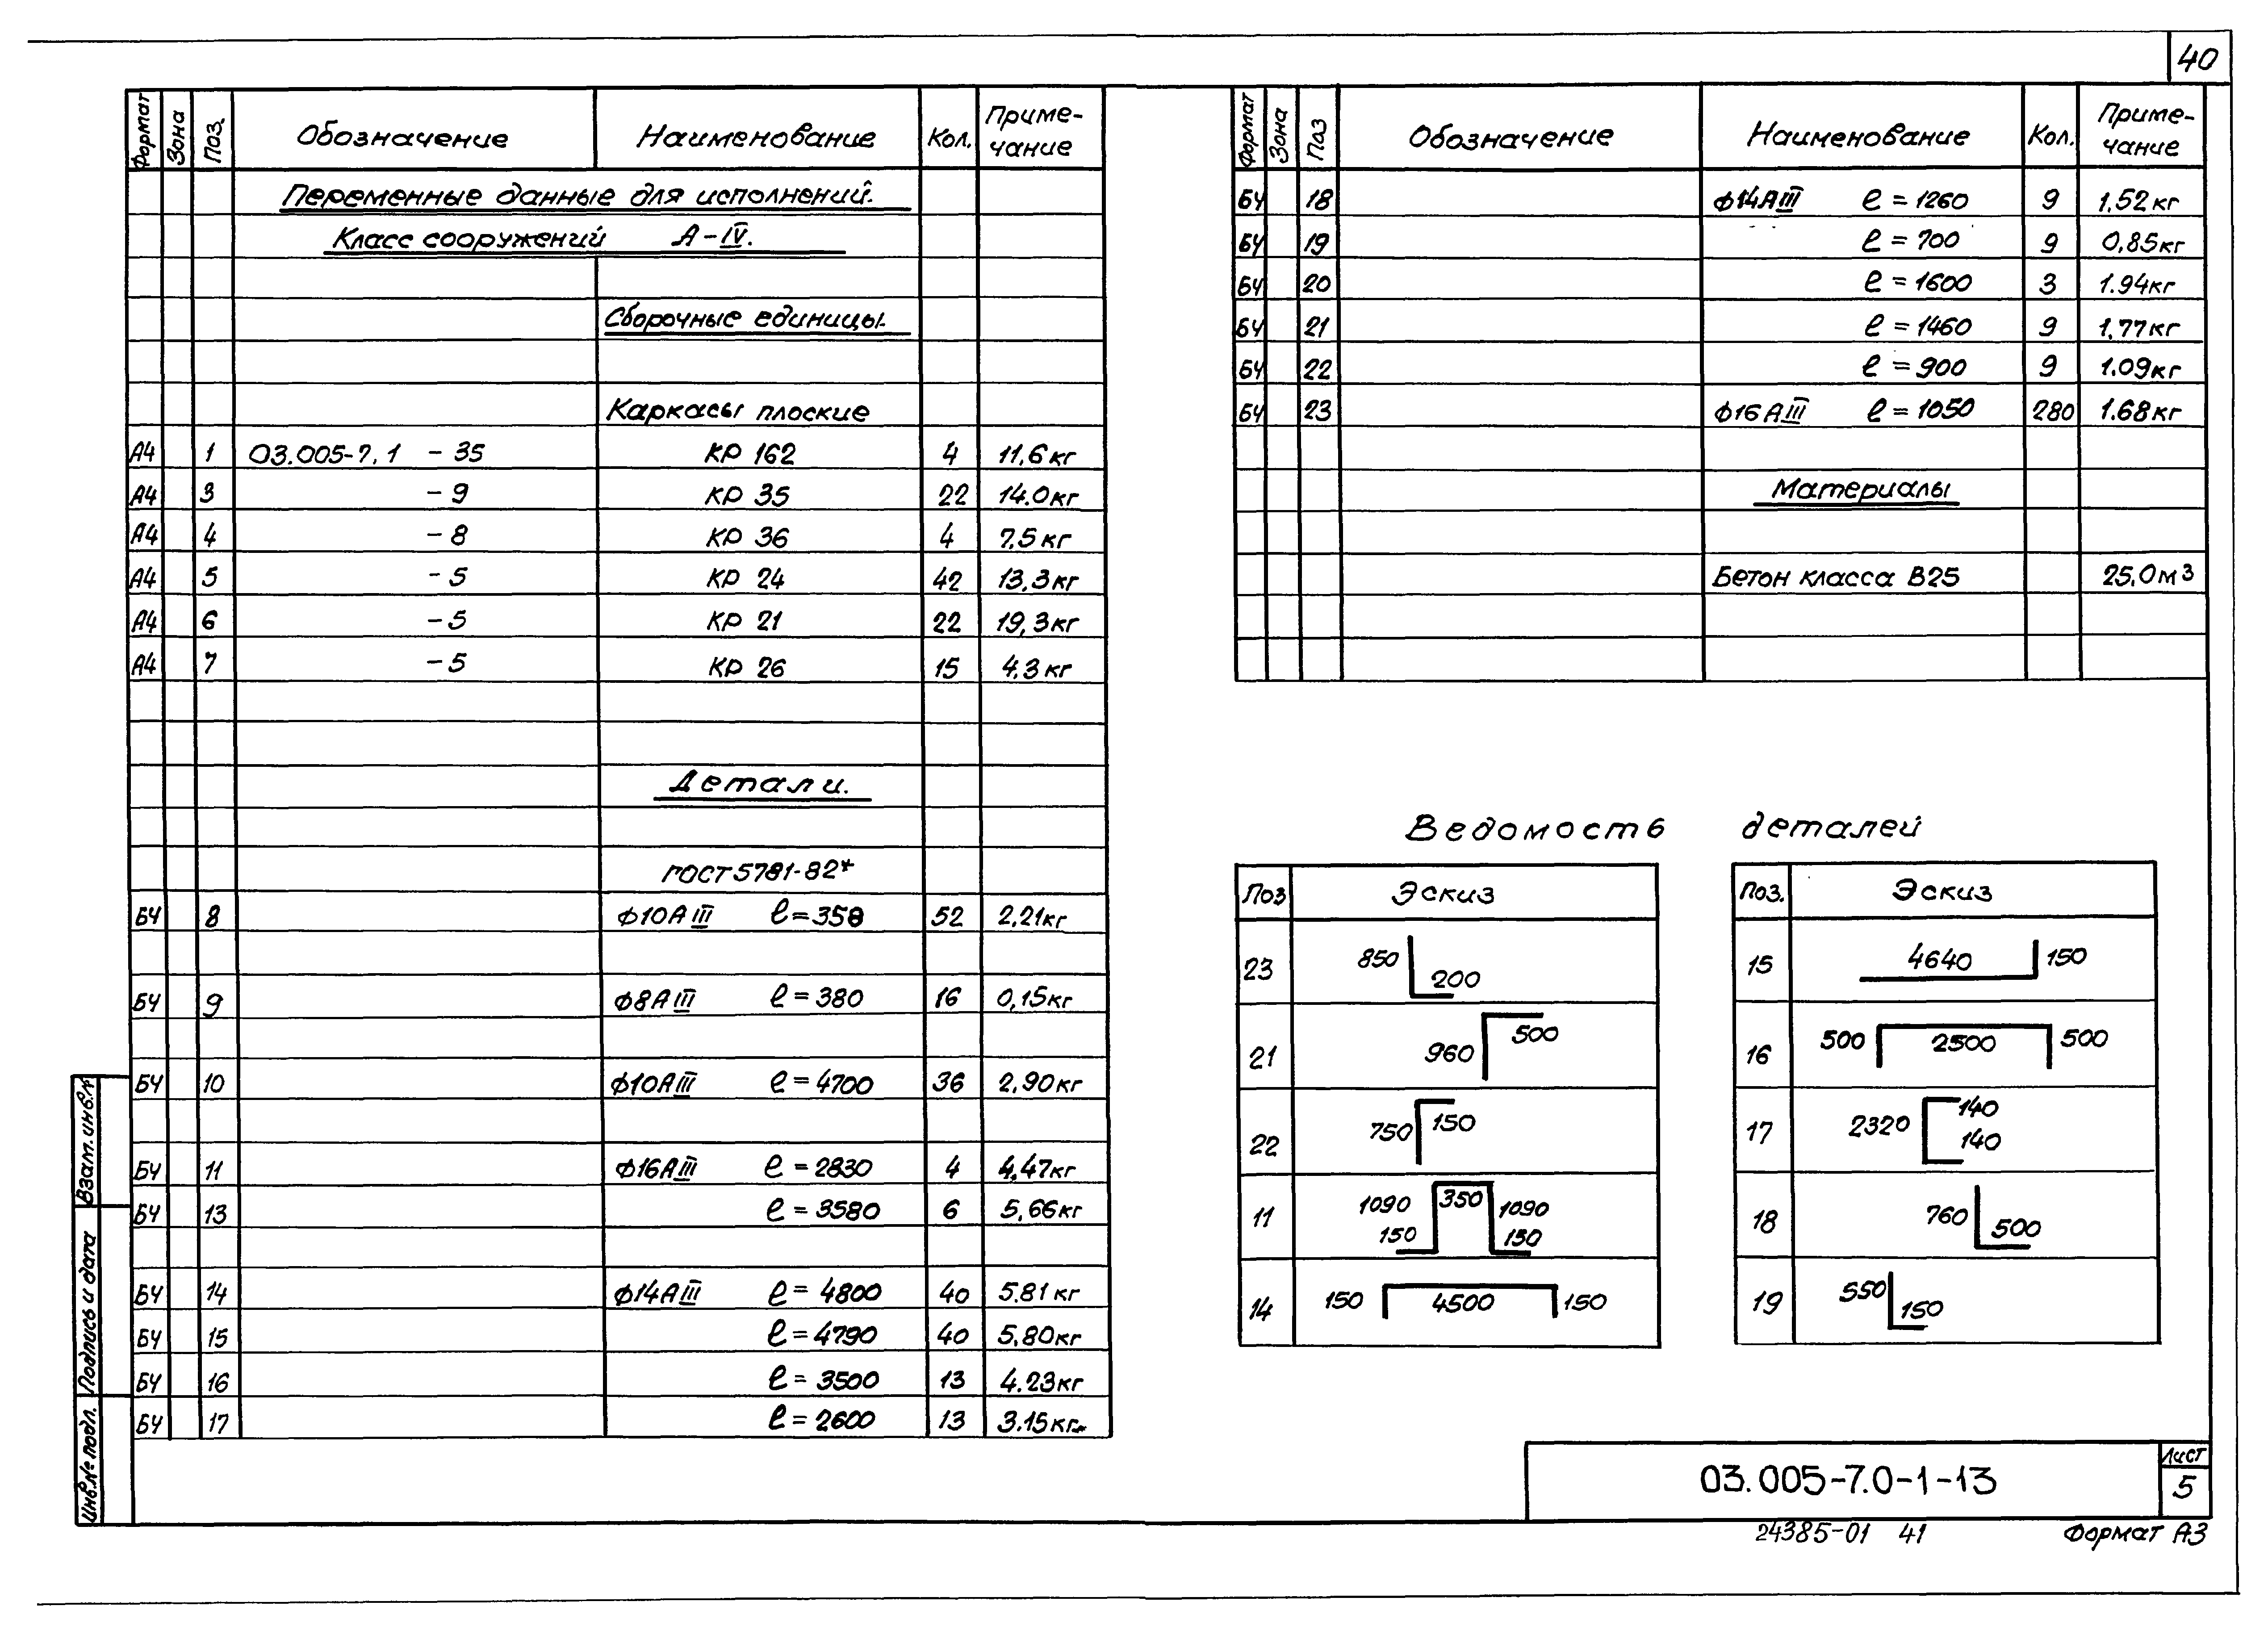 40
Формат Зона Поз. Обозначение Наименование Кол. Приме-чание
Переменные данные для исполнений.
Класс сооружений А-IV.
Сборочные единицы.
Каркасы плоские
А4 1 03.005-7.1 - 35 КР 162 4 11,6 кг
А4 3 - 9 КР 35 22 14.0 кг
А4 4 - 8 КР 36 4 7,5 кг
А4 5 - 5 КР 24 42 13,3 кг
А4 6 - 5 КР 21 22 19,3 кг
А4 7 - 5 КР 26 15 4.3 кг
Детали.
ГОСТ 5781-82*
БЧ 8 ф10АIII ℓ=358 52 2,21кг
БЧ 9 ф8АIII ℓ=380 16 0,15кг
БЧ 10 ф10АIII ℓ=4700 36 2,90кг
БЧ 11 ф16АIII ℓ=2830 4 4,47кг
БЧ 13 ℓ=3580 6 5,66кг
БЧ 14 ф14АIII ℓ=4800 40 5.81 кг
БЧ 15 ℓ=4790 40 5,80кг
БЧ 16 ℓ=3500 13 4.23кг
БЧ 17 ℓ=2600 13 3.15кг
Формат Зона Поз Обозначение Наименование Кол. Приме-чание
БЧ 18 ф14АIII ℓ=1260 9 1.52кг
БЧ 19 ℓ=700 9 0,85кг
БЧ 20 ℓ=1600 3 1.94кг
БЧ 21 ℓ=1460 9 1,77кг
БЧ 22 ℓ=900 9 1.09кг
БЧ 23 ф16АIII ℓ=1050 280 1.68кг
Материалы
Бетон класса В25 25.0м3
Ведомость деталей
Поз Эскиз
23 850 200
21 960 500
22 750 150
11 1090 350 1090 150 150
14 150 4500 150
Поз. Эскиз
15 4640 150
16 500 2500 500
17 2320 140 140
18 760 500
19 550 150
Взам. инв.№
Подпись и дата
Инв.№ подл.
03.005-7.0-1-13
Лист
5
24385-01 41 Формат А3